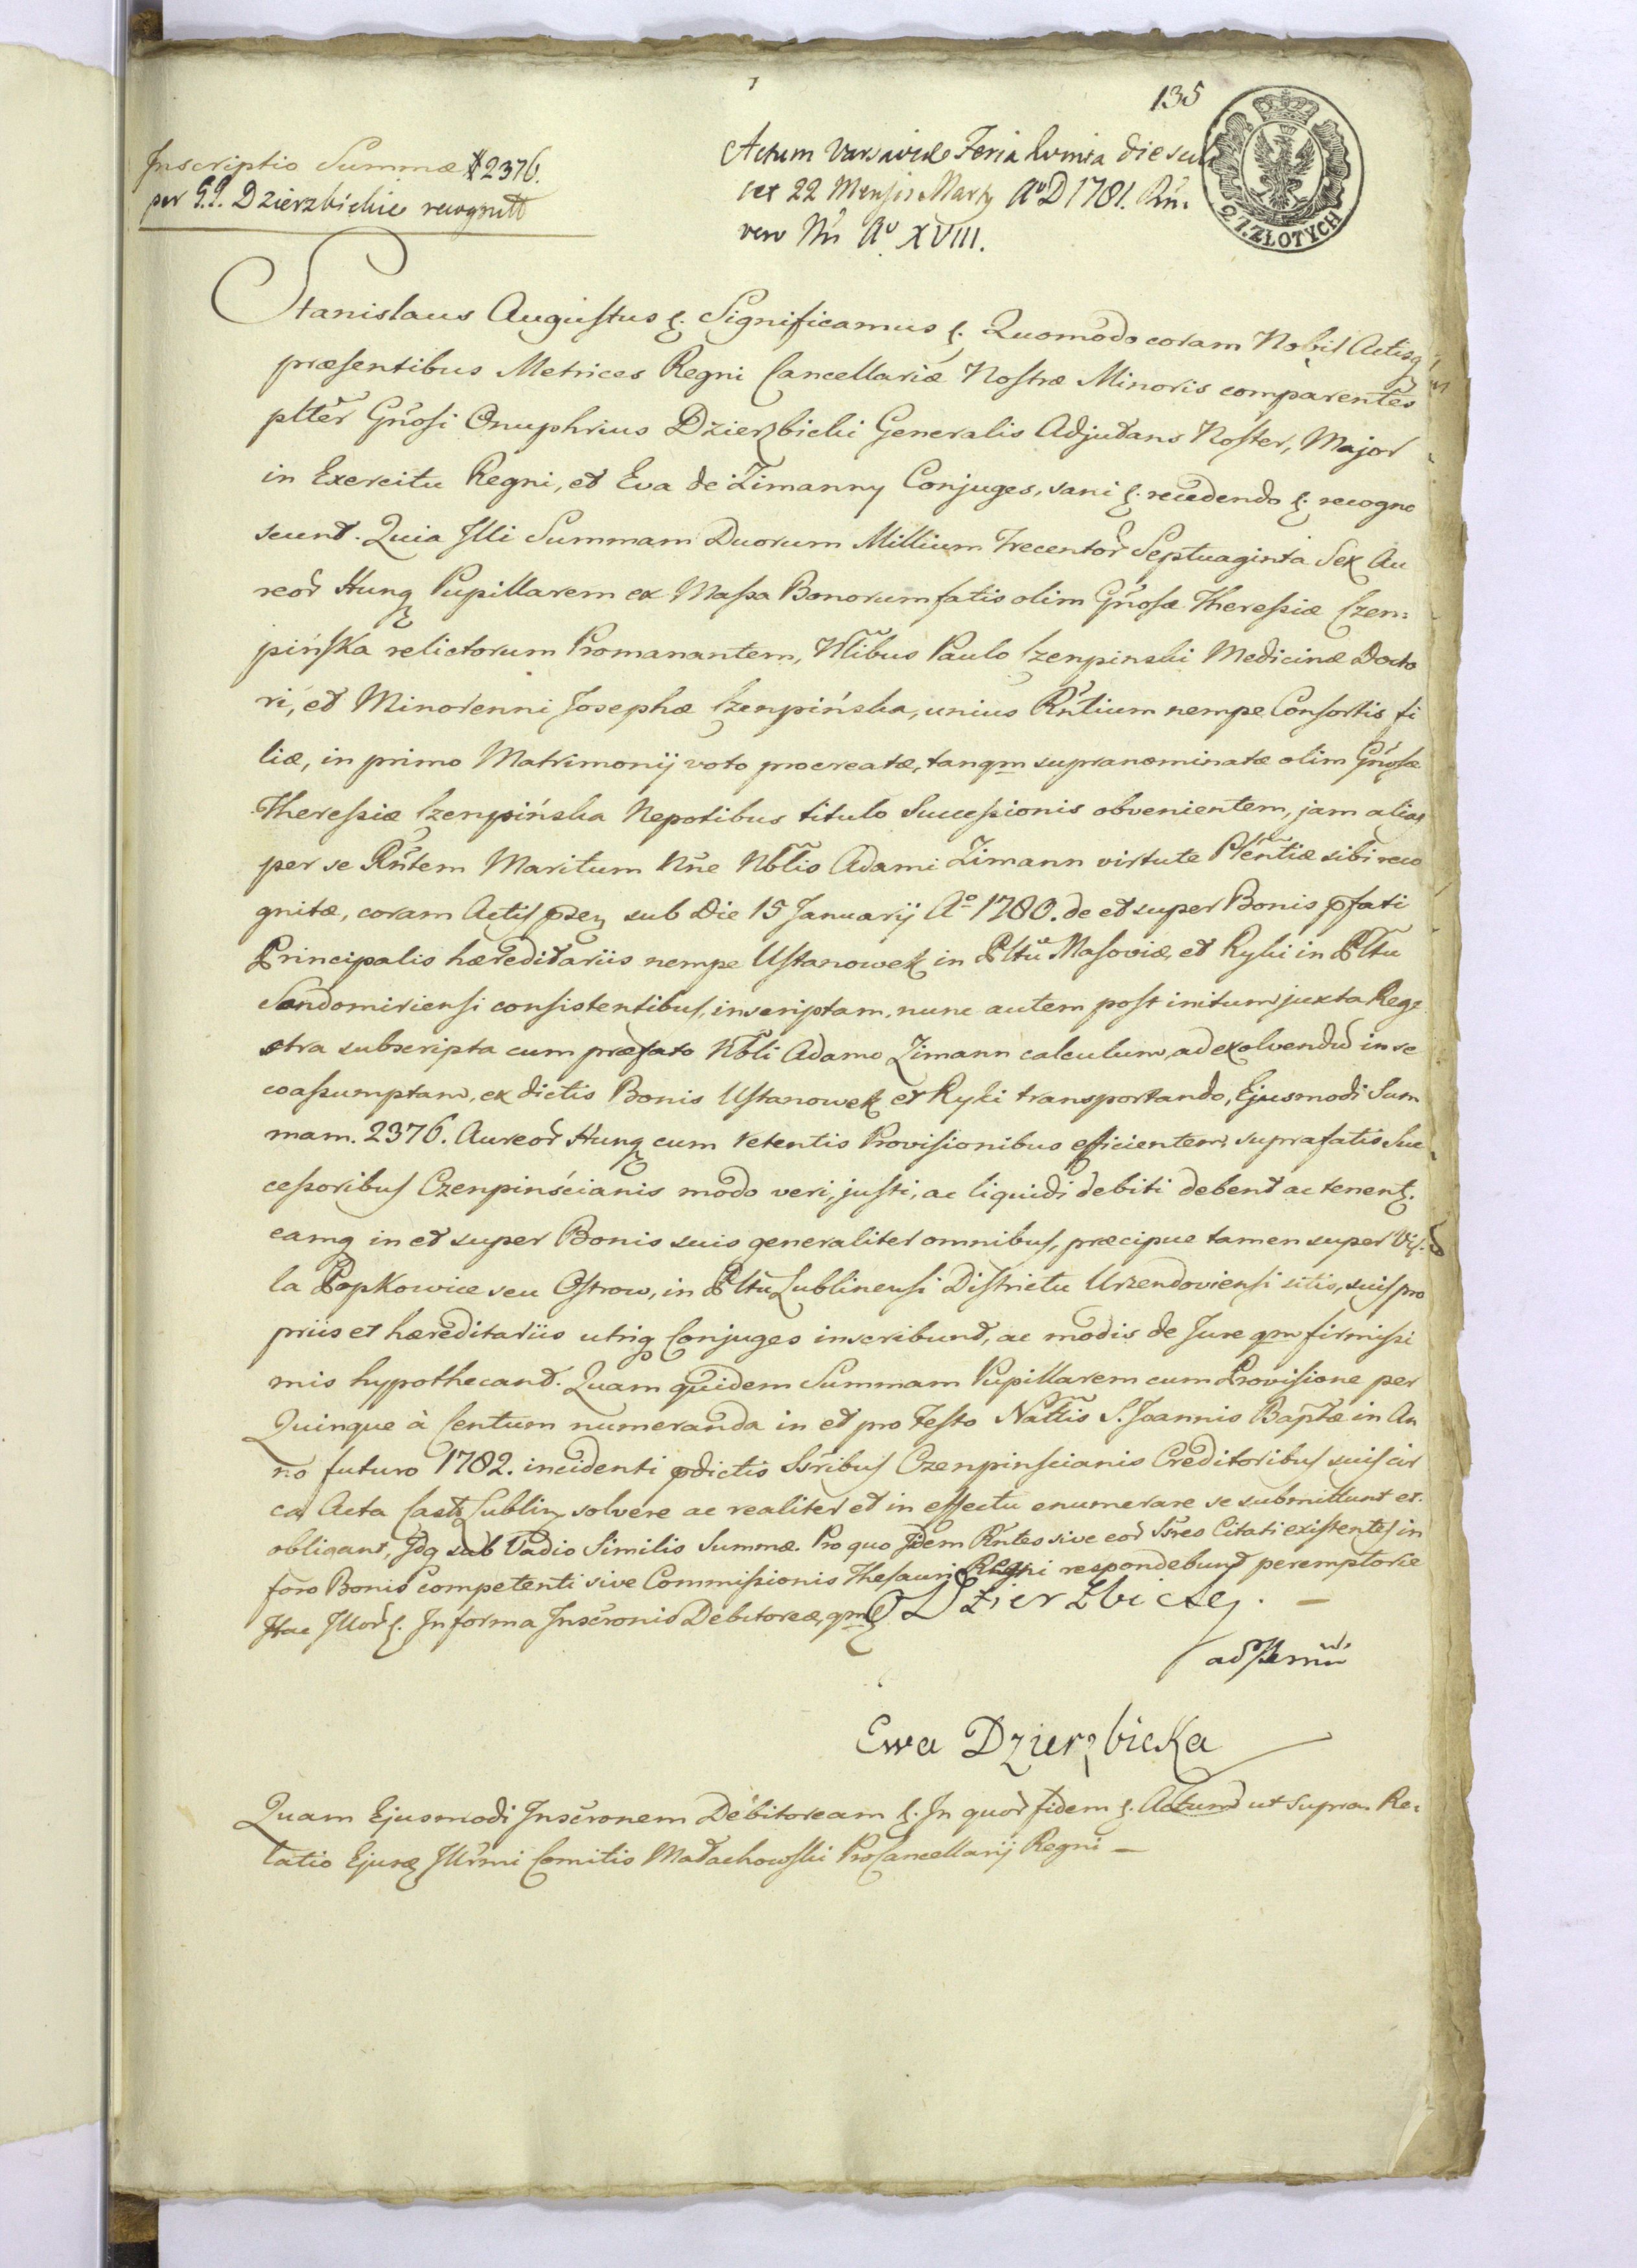 135
Inscriptio Summæ # 2376.
per G.G. Dzierzbickie recognitt
Actum Varsaviæ Feria Quinta die scili
cet 22 Mensis Martij A° D 1781. Rñi
vero Nri A° XVIII.
2 Z. ZŁOTYCH
Stanislaus Augustus &. Significamus &. Quomodo coram Nobis Actisq
præsentibus Metrices Regni Cancellariæ Nostræ Minoris comparentes
plter Gñosi Onuphrius Dzierzbicki Generalis Adjutans Noster, Major
in Exercitu Regni, et Eva de Zimanny Conjuges, sani &. recedendo &. recogno
scunt. Quia Illi Summam Duorum Millium Trecentor Septuaginta Sex Au
reor Hung Pupillarem ex Massa Bonorum fatis olim Gñosæ Theressiæ Czem=
pińska relictorum Promanantem, Nblibus Paulo Czenpinski Medicinæ Docto
ri, et Minorenni Josephæ Czenpińska, unius Rntium nempe Consortis fi
liæ, in primo Matrimonij voto procreatæ, tanqm supranominatæ olim Gñosæ
Theressiæ Czenpińska Nepotibus titulo Successionis obvenientem, jam alias
per se Rntem Maritum Nñe Nbtis Adami Zimann virtute Plentiæ sibi reco
gnitæ, coram Actis psen sub die 15 Januarij A° 1780. de et super Bonis pfati
Principalis hæreditariis nempe Ustanowek in Pltu Masoviæ, et Ryki in Pltu
Sandomiriensi consistentibus, inscriptam, nunc autem post initum juxta Rege
stra subscripta cum præfato Nbli Adamo Zimann calculum, ad exolvendu in se
coassumptam, ex dictis Bonis Ustanowek et Ryki transportando, Ejusmodi Sum
mam. 2376. Aureor Hung cum retentis Provisionibus efficientem, suprafatis Suc
cessoribus Czenpinścianis modo veri, justi, ac liquidi debiti debent ac tenent.
eamq in et super Bonis suis generaliter omnibus, præcipue tamen super Vil
la Popkowice seu Ostrow, in Pltu Lublinensi Districtu Urzendoviensi sitis, suis pro
priis et hæreditariis utriq Conjuges inscribunt, ac modis de Jure qm firmissi
mis hypothecant. Quam quidem Summam Pupillarem cum Provisione per
Quinque à Centum numeranda in et pro Festo Nattis S. Joannis Baptæ in An
no futuro 1782. incidenti pdictis Ssribus Czenpinscianis Creditoribus suis cir
ca Acta Castr Lublin solvere ac realiter et in effectu enumerare se submittunt et
obligant, Idq sub Vadio Similis Summæ. Pro quo Jidem Rntes sive eor Ssres Citati existentes in
foro Bonis competenti sive Commissionis Thesauri Regni respondebunt peremptorie
Hac Illor &. In forma Inscronis Debitoreæ, qm &
O Dzierzbicki.
Ewa Dzierzbicka
Quam Ejusmodi Inscronem Debitoream &. In quor fidem &. Actum ut supra. Re=
latio Ejusd Illrmi Comitis Małachowski ProCancellarij Regni —